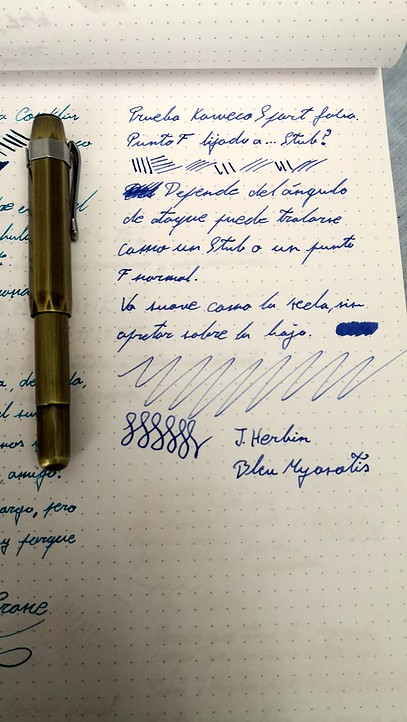 a Conklin
Prueba Kaweco Sport falsa.
Punto F lijado a... Stub?
Depende del ángulo
de ataque puede tratarse
como un Stub o un punto
F normal.
Va suave como la seda, sin
apretar sobre la hoja.
J. Herbin
Bleu Myosotis
amigo!
argo, pero
y porque